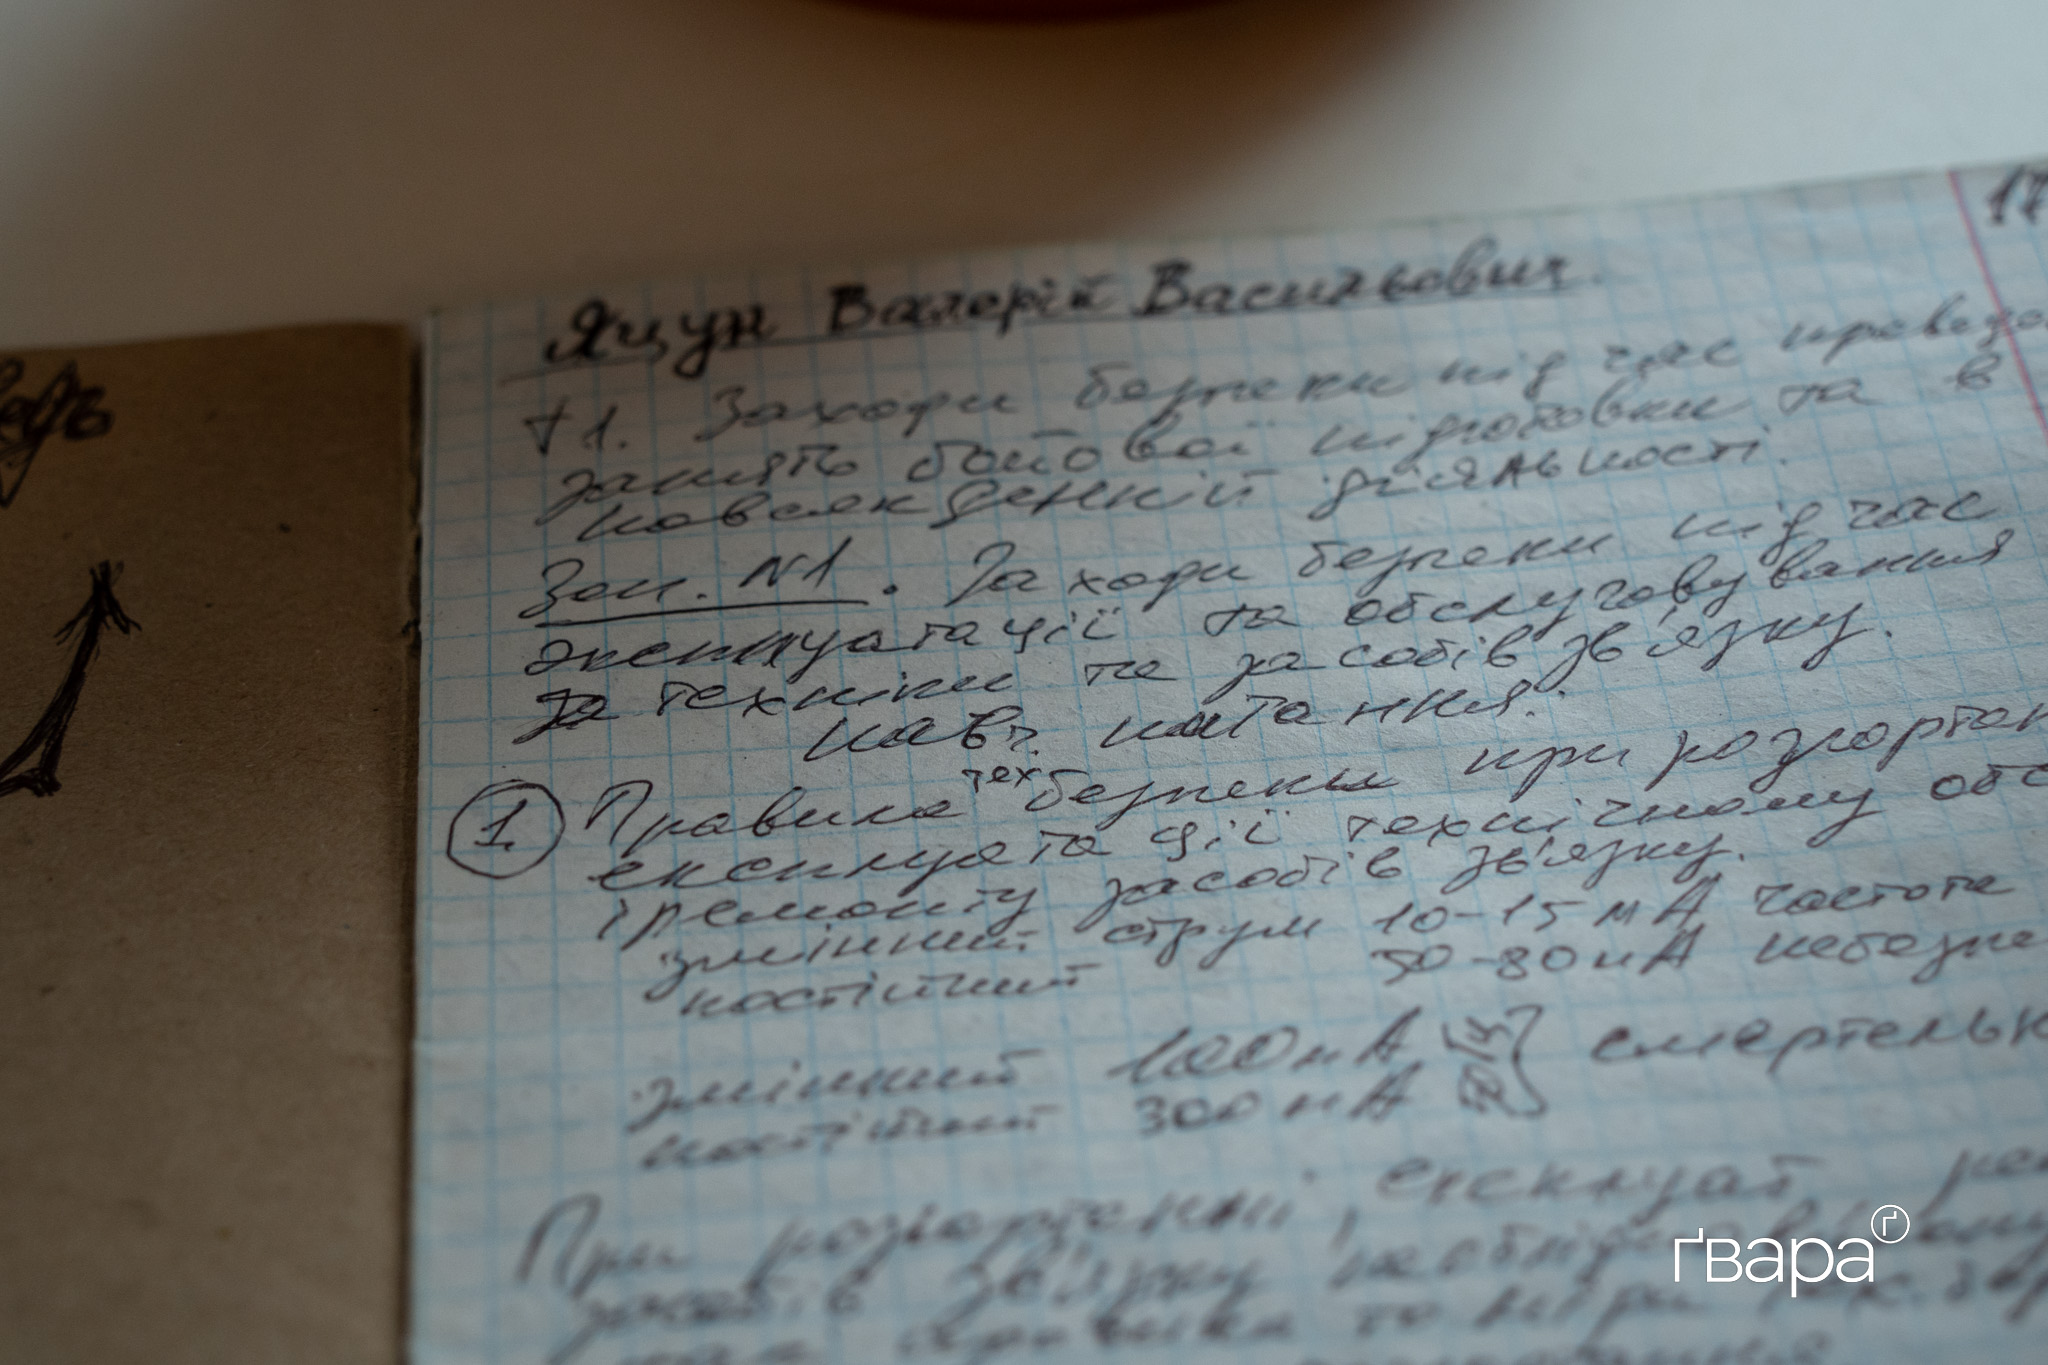 17
Яцун Валерій Васильович.
Т1. Заходи безпеки під час провед
занять бойової підготовки та в
повсякденній діяльності.
Зан. №1. Заходи безпеки під час
эксплуатації та обслуговування
та техніки та засобів зв'язку.
Навч. питання:
1. Правила тех безпеки при розгортан
експлуатації технічному обс
і ремонту засобів зв'язку.
змінний струм 10-15 мА частота
постійний 50-80 мА небезпе
змінний 100 мА 50 Гц } смертельн
постійний 300 мА
При розгортанні, експлуат рем
засобів зв'язку необхідно
ґвара ґ